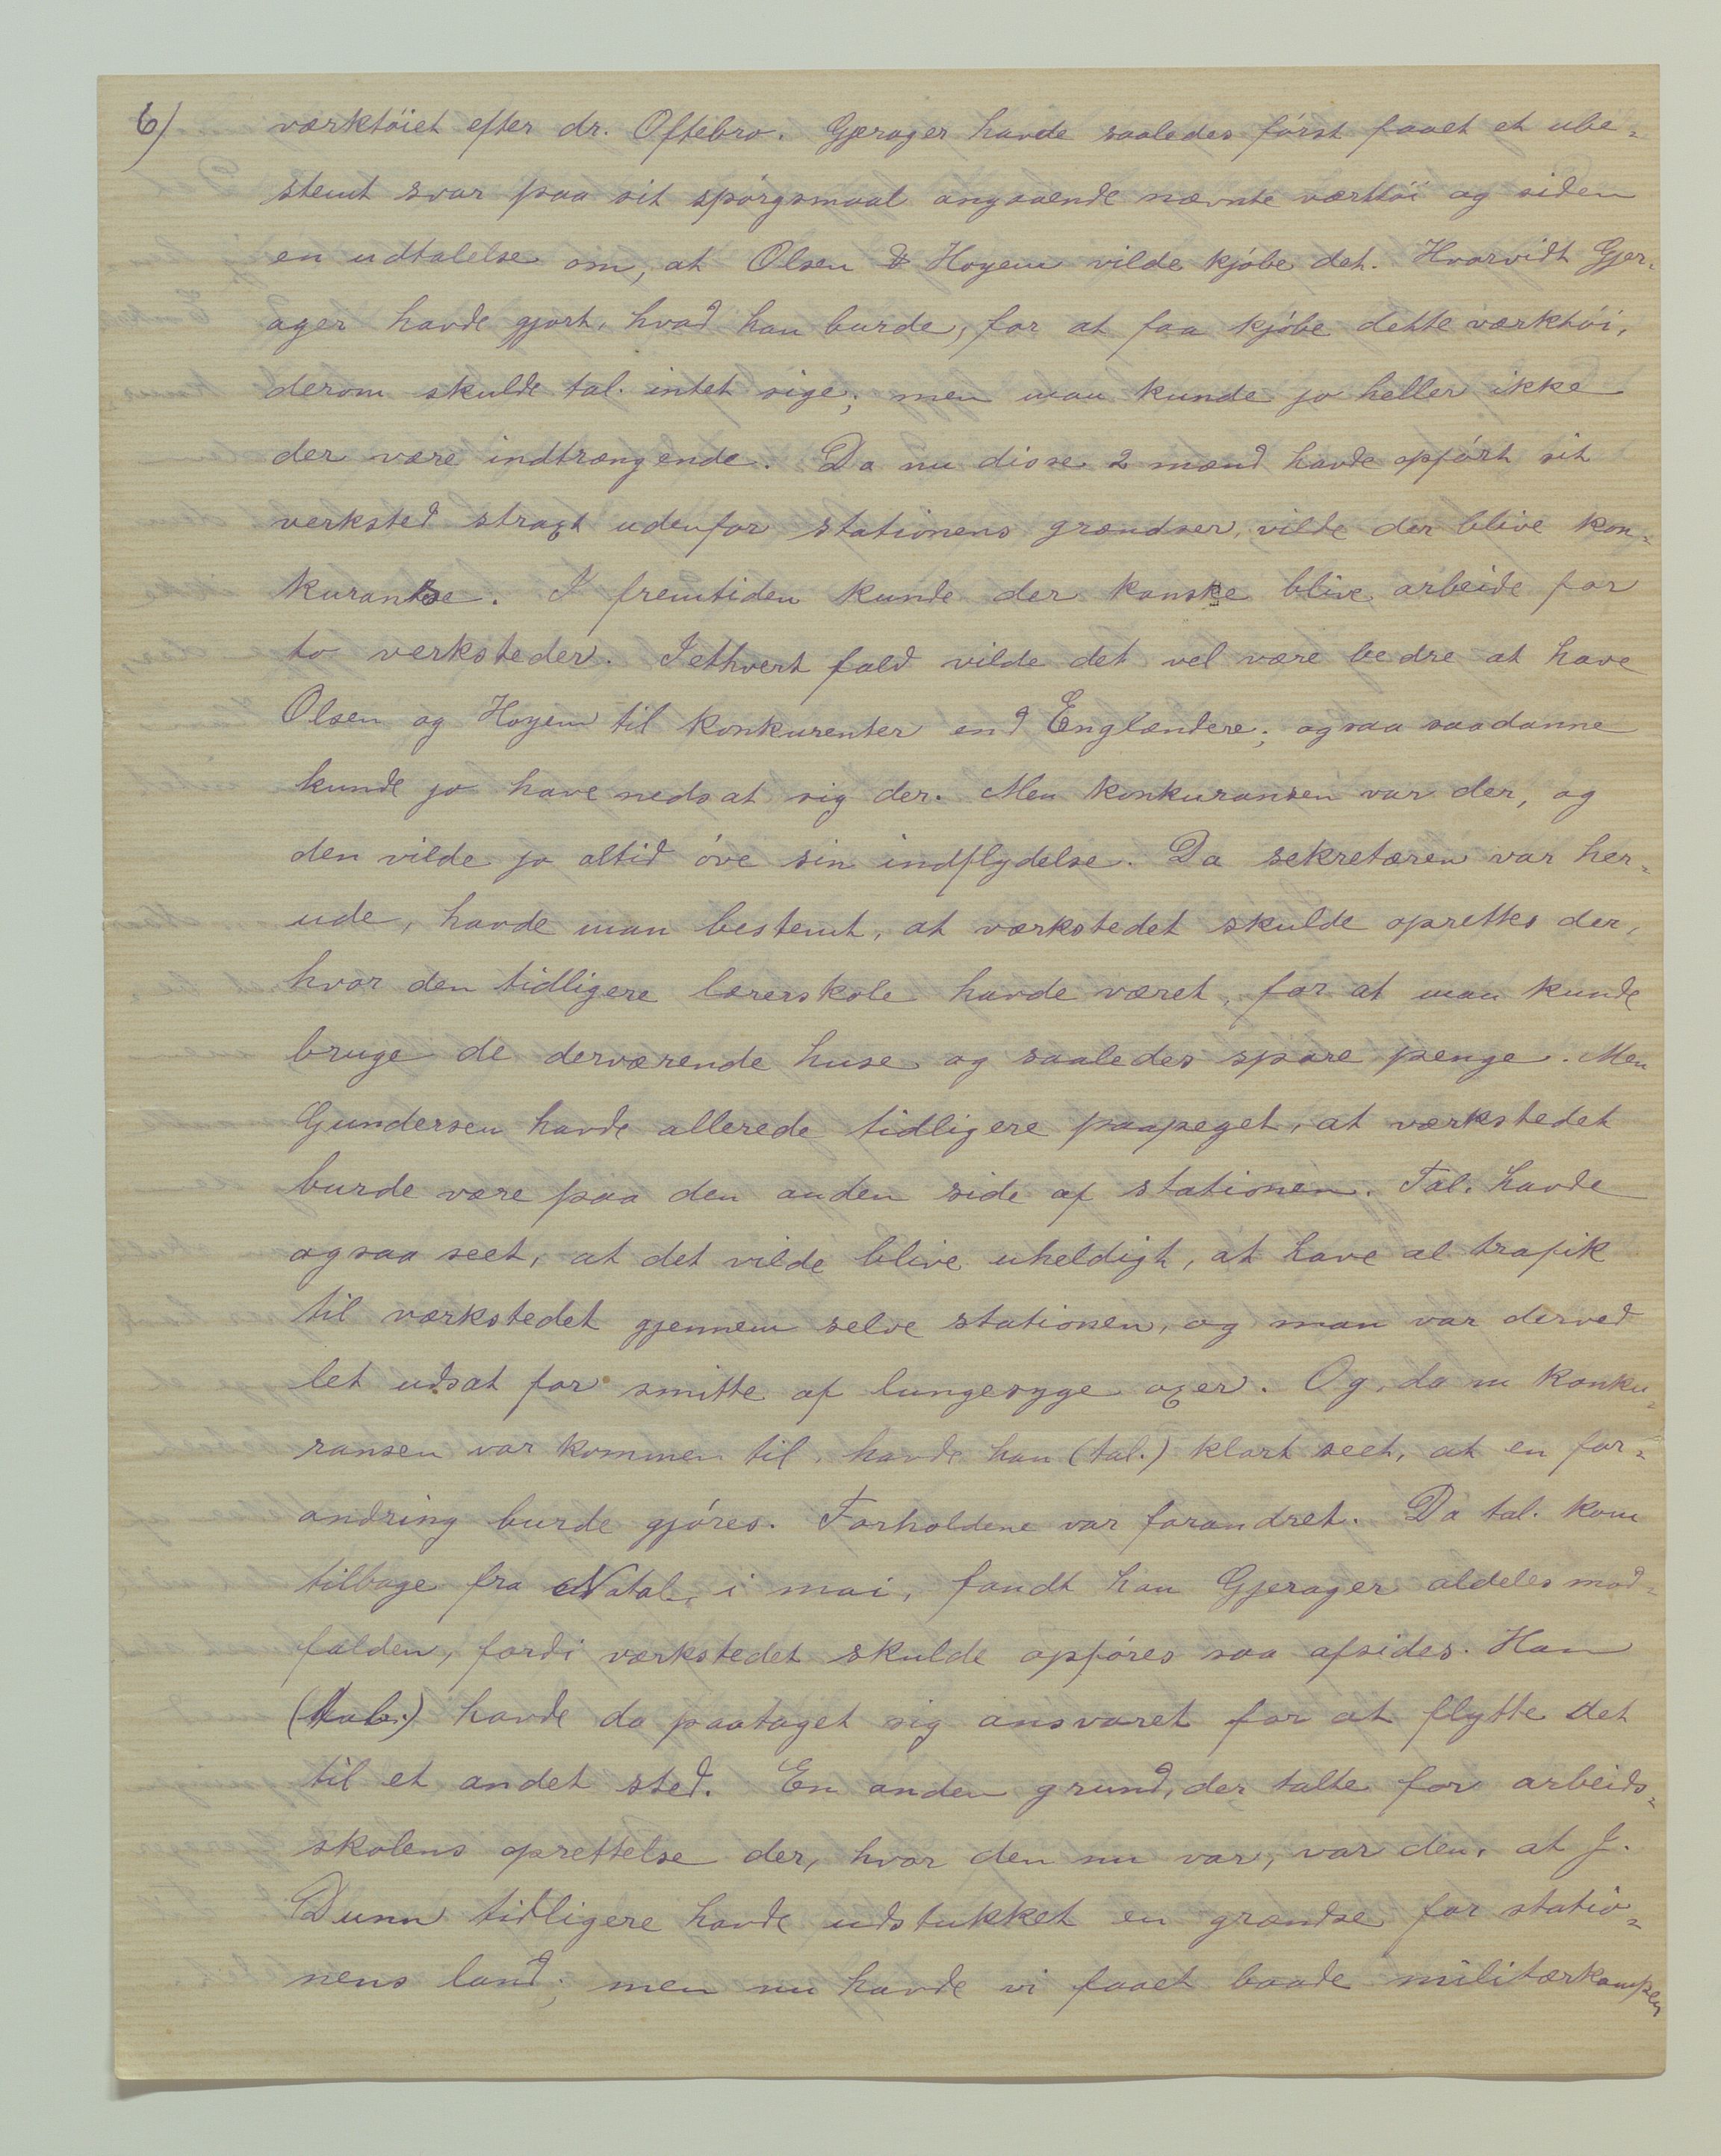 6)
værktöiet efter dr. Oftebro. Gjerager havde saaledes först faaet et ube-
stemt svar paa sit spörgsmaal angaaende nævnte værktöi og siden
en udtalelse om, at Olsen & Hoyem vilde kjöbe det. Hvorvidt Gjer-
ager havde gjort, hvad han burde, for at faa kjöbe dette værktöi,
derom skulde tal. intet sige; men man kunde jo heller ikke
der være indtrængende. Da nu disse 2 mænd havde opfört sit
verksted stragt udenfor stationens grændser, vilde der blive kon-
kuranse. I fremtiden kunde der kanske blive arbeide for
to verksteder. Iethvert fald vilde det vel være bedre at have
Olsen og Hoyem til konkurenter end Englændere; ogsaa saadanne
kunde jo have nedsat sig der. Men konkuransen var der, og
den vilde jo altid öve sin indflydelse. Da sekretæren var her-
ude, havde man bestemt, at værkstedet skulde oprettes der,
hvor den tidligere lærerskole havde været, for at man kunde
bruge de derværende huse og saaledes spare penge. Men
Gundersen havde allerede tidligere paapeget, at værkstedet
burde være paa den anden side af stationen. Tal. havde
ogsaa seet, at det vilde blive uheldigt, at have al trafik
til værkstedet gjennem selve stationen, og man var derved
let udsat for smitte af lungesyge oxer. Og, da nu konku-
ransen var kommen til, havde han (tal.) klart seet, at en for-
andring burde gjöres. Forholdene var forandret. Da tal. kom
tilbage fra Natal, i mai, fandt han Gjerager aldeles mod-
falden, fordi værkstedet skulde opföres saa afsides. Han
(tal.) havde da paataget sig ansvaret for at flytte det
til et andet sted. En anden grund, der talte for arbeids-
skolens oprettelse der, hvor den nu var, var den, at J.
Dunn tidligere havde udstukket en grændse for statio-
nens land; men nu havde vi faaet baade militærkampen